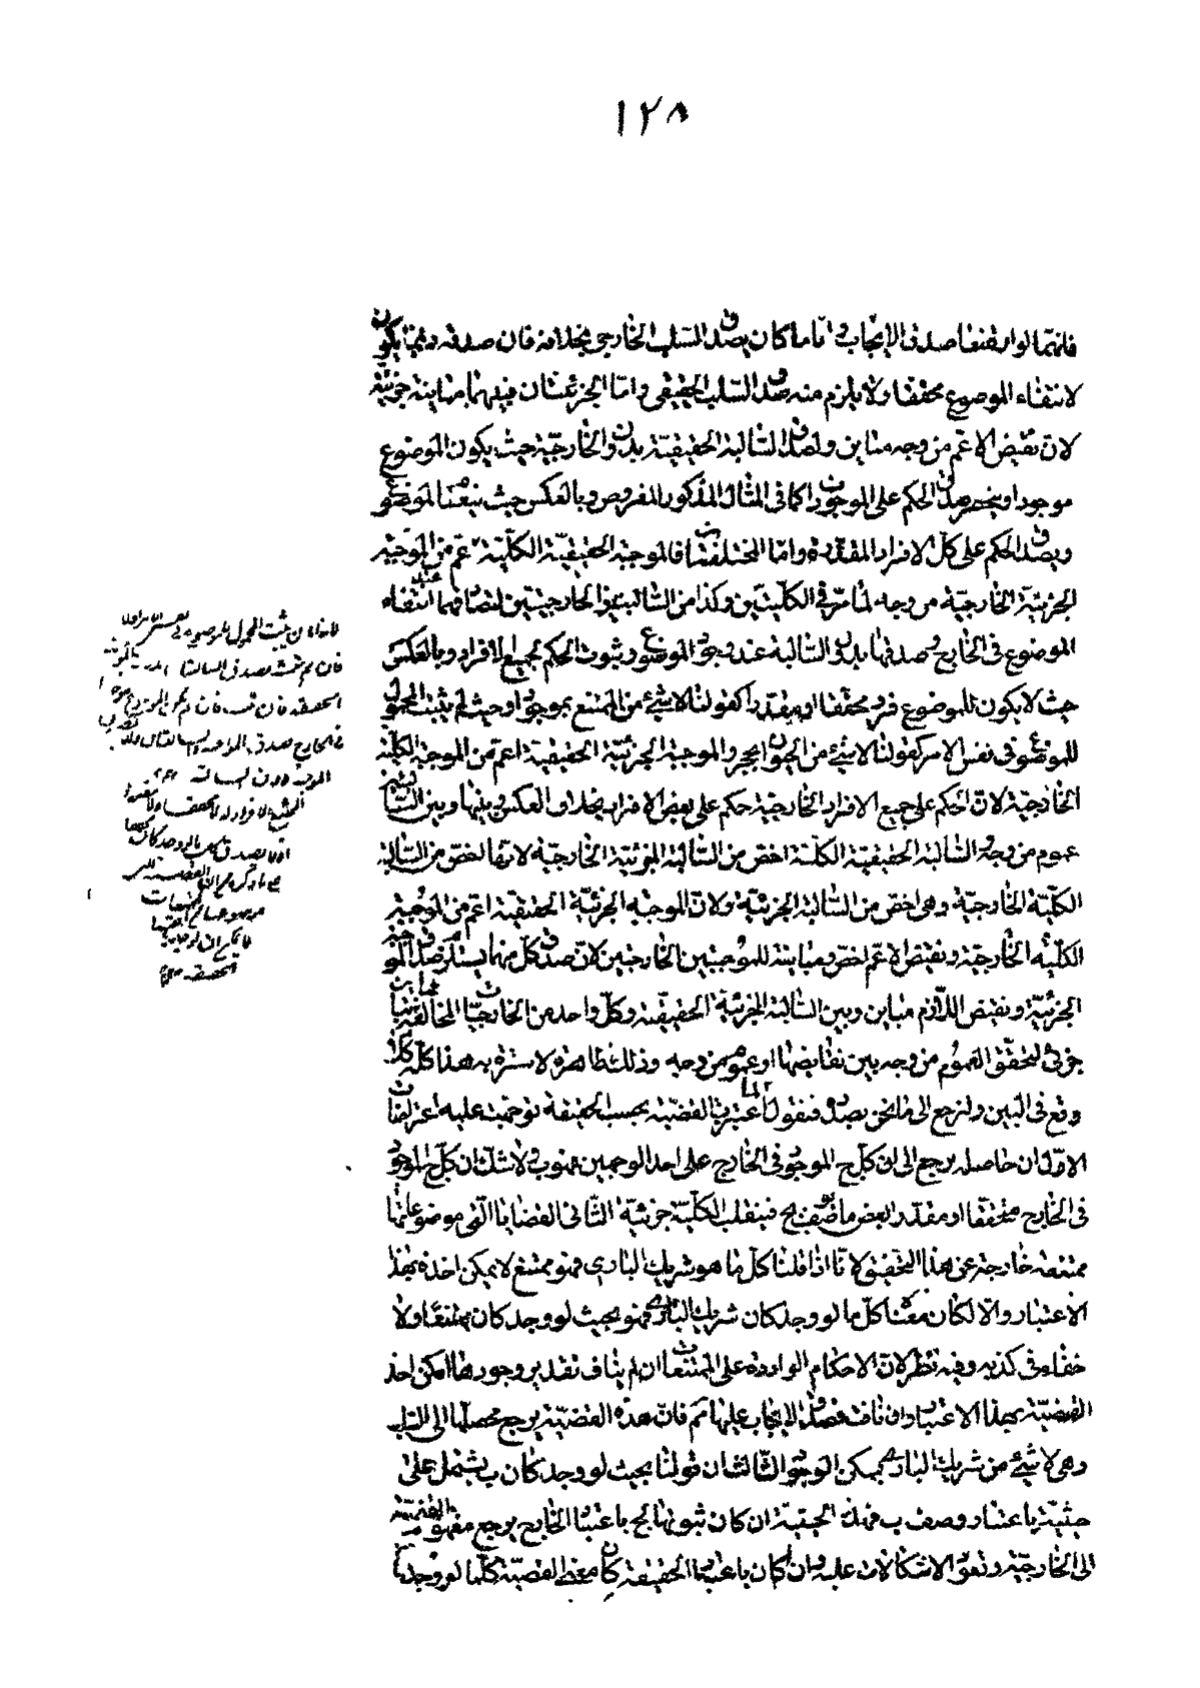 ١٢٨
فانهما لو ارتفعا صدق الايجاب واما ما كان يصدق السلب الخارجى بخلافه فان صدقه ربما يكون
لانتفاء الموضوع محققا ولا يلزم منه صدق السلب الحقيقى واما الجزئيتان فبينهما مباينة جزئية
لان نقيض الاعم من وجه متباين ولصدق السالبة الحقيقية بدون الخارجية حيث يكون الموضوع
موجودا وينحصر صدق الحكم على الموجود كما فى المثال المذكور المفروض وبالعكس حيث ينتفى الموضوع
ويصدق الحكم على كل الافراد المقدرة واما المختلفتان فالموجبة الحقيقية الكلية اعم من الموجبة
الجزئية الخارجية من وجه لما مر فى الكليتين وكذا من السالبتين الخارجيتين لتصادقهما عند انتفاء
الموضوع فى الخارج وصدقها بدون السالبة عند وجود الموضوع وثبوت الحكم لجميع الافراد وبالعكس
حيث لا يكون للموضوع فرد محققا او مقدرا كقولنا لا شئ من الممتنع بموجود او حيث لم يثبت المحمول
للموضوع فى نفس الامر كقولنا لا شئ من الحيوان بحجر والموجبة الجزئية الحقيقية اعم من الموجبة الكلية
الخارجية لان الحكم على جميع الافراد الخارجية حكم على بعض الافراد بخلاف العكس وبينها وبين السالبتين
عموم من وجه والسالبة الحقيقية الكلية اخص من السالبة الجزئية الخارجية لانها اخص من السالبة
الكلية الخارجية وهى اخص من السالبة الجزئية ولان الموجبة الجزئية الحقيقية اعم من الموجبة
الكلية الخارجية ونقيض الاعم اخص ومباينة للموجبتين الخارجيتين لان صدق كل منهما يستلزم صدق الموجبة
الجزئية ونقيض اللازم مباين وبين السالبة الجزئية الحقيقية وكل واحد من الخارجيات المخالفة مباينة
جزئية لتحقق العموم من وجه بين نقايضها او عمومه من وجه وذلك ظاهر لا سترة به هذا كله كلام
وقع فى البين ولنرجع الى ما نحن بصدده فنقول لما اعتبرت القضية بحسب الحقيقة توجهت عليه اعتراضات
الاول ان حاصله يرجع الى ان كل ج الموجود فى الخارج على احد الوجهين فهو ب ولا شك ان كل ج الموجود
فى الخارج محققا او مقدرا بعض ما يتصف بج فينقلب الكلية جزئية الثانى القضايا التى موضوعاتها
ممتنعة خارجة عن هذا التحقيق لانا اذا قلنا كل ما هو شريك البارى فهو ممتنع لا يمكن اخذه بهذا
الاعتبار والا لكان معناه كل ما لو وجد كان شريك البارى فهو بحيث لو وجد كان ممتنعا ولا
خفاء فى كذبه وفيه نظر لان الاحكام الواردة على الممتنعات ان لم يناف تقدير وجودها امكن اخذ
القضية بهذا الاعتبار وان ناف فصدق الايجاب عليها مم فان هذه القضية يرجع محصلها الى السلب
وهى لا شئ من شريك البارى بممكن الوجود الثالث ان قولنا بحيث لو وجد كان ب يشتمل على
حيثية باعتبار وصف ب فهذه الحيثية ان كان ثبوتها لج باعتبار الخارج يرجع مفهوم القضية
الى الخارجية وتعود الاشكالات عليه وان كان باعتبار الحقيقة كان معنى القضية كلما لو وجد